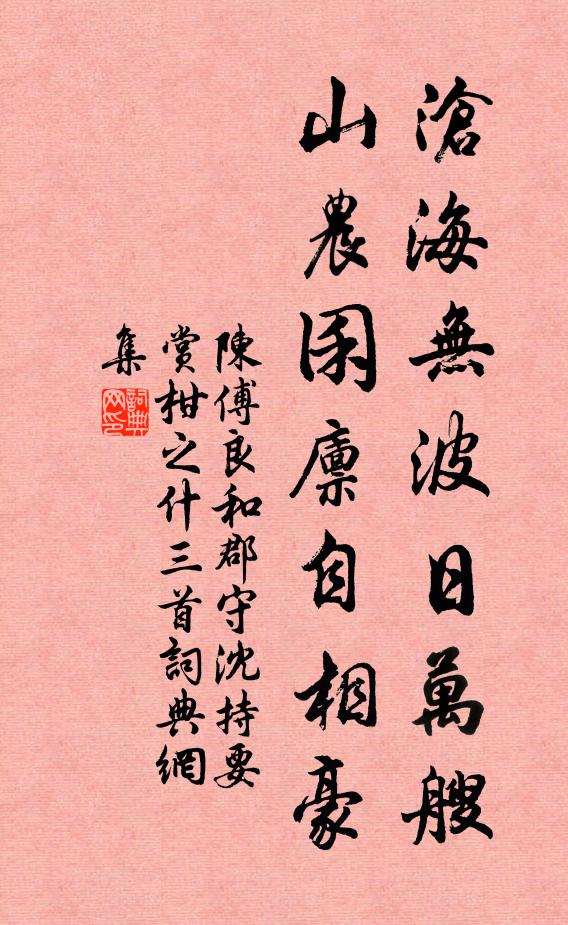 滄海無波日萬艘
山農困廩自相豪
陳傅良和郡守沈持要
賞柑之什三首詞典網
集
詞典
网印